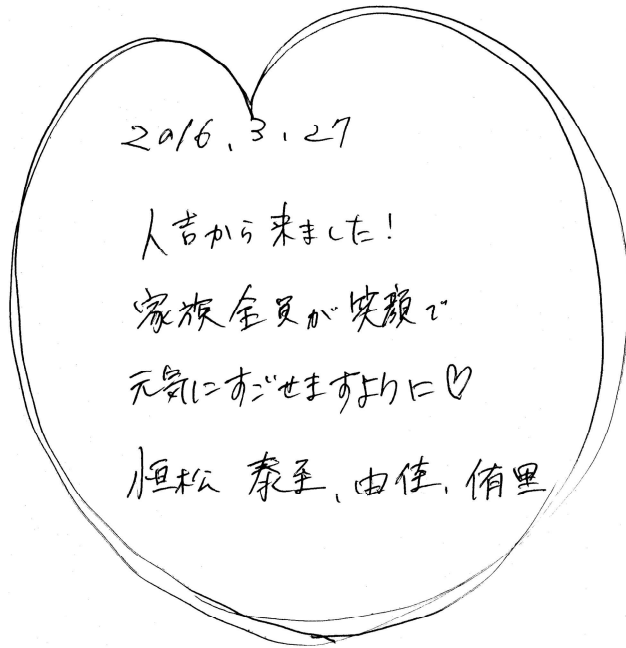 2016.3.27
人吉から来ました!
家族全員が笑顔で
元気にすごせますように♡
恒松 泰至、由佳、侑里